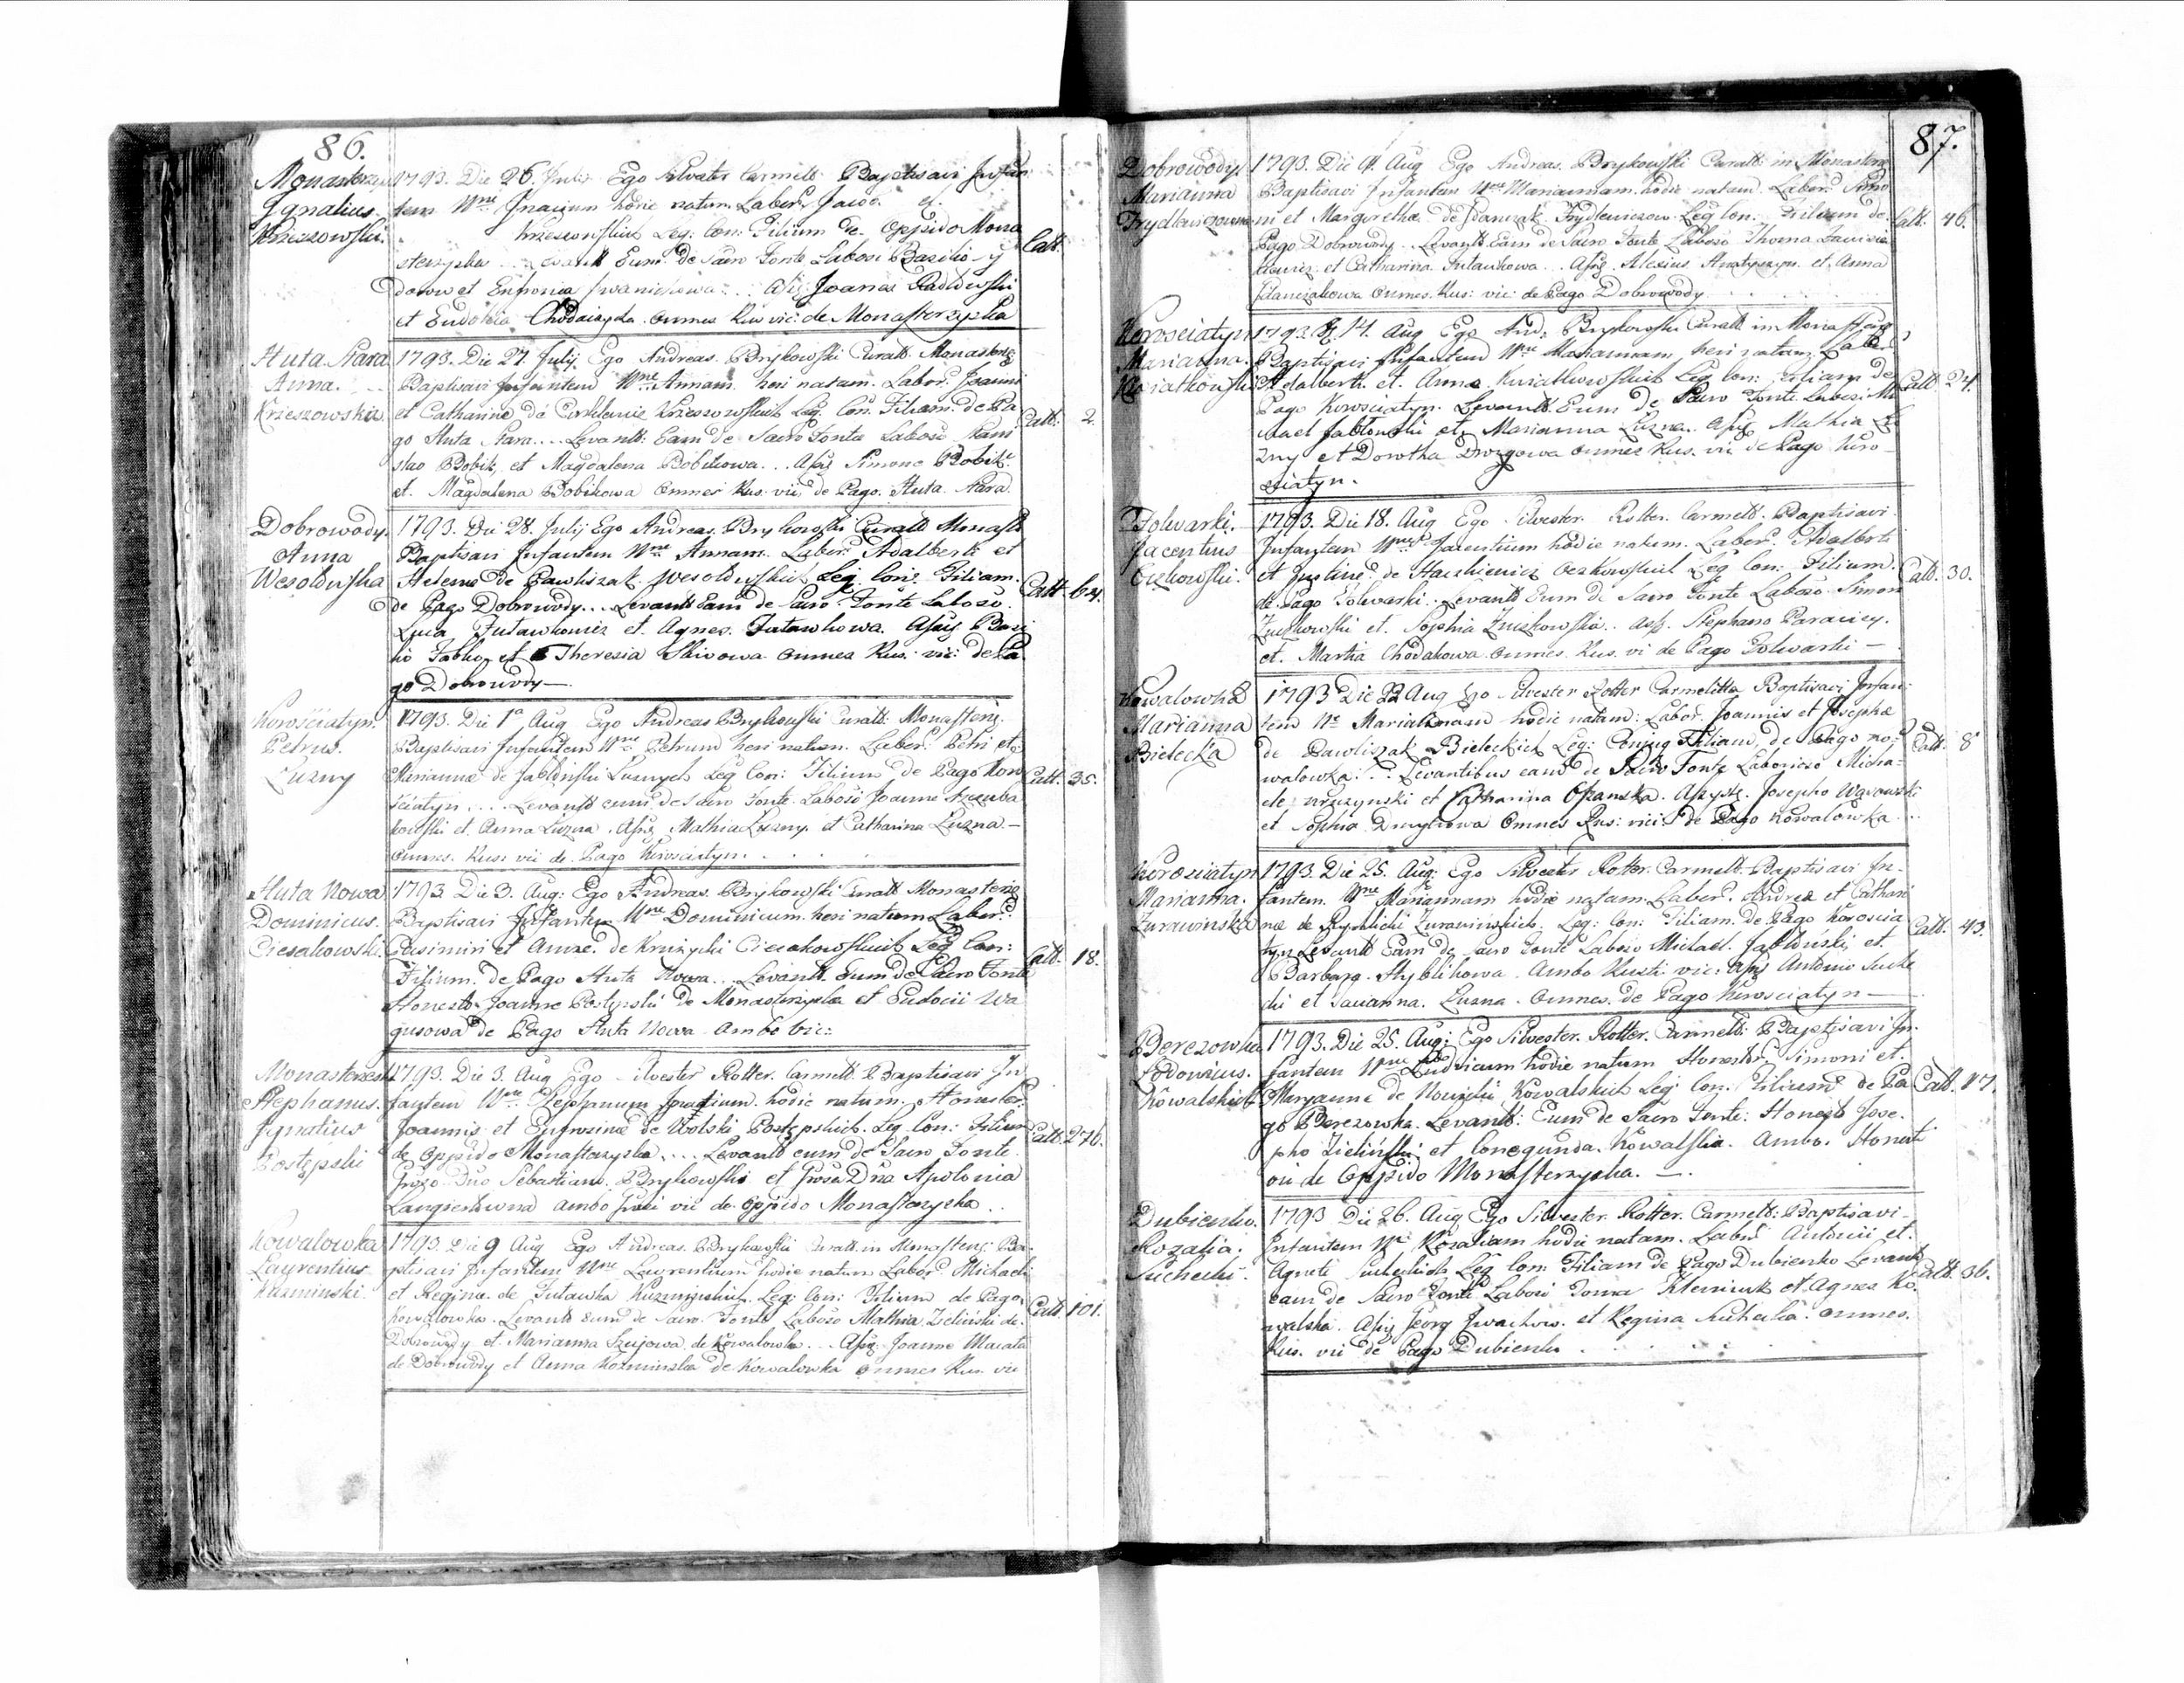 86.
Monasterzys
Ignatius
Krzeszowski.
1793. Die 26. July Ego Silvester Carmelt. Baptisavi Infan
tem Nne Ignacium hodie natum Labor. Jacob. et
Krzeszowskich Leg: Con: Filium de Oppido Mona
sterzyska Levantt Eum de Sacro Fonte Laboso Basilio
et Eufronia Iwanickowa Assis Joanes Radlowski
et Eudokia Chodaczyka Omnes Rus vic: de Monasterzyska
Catt.
Huta Stara
Anna.
Krzeszowska
1793. Die 27. July Ego Andreas Brykowski Curatt. Monasterz
Baptisavi Infantem Nne Annam heri natam. Labor. Joanni
et Catharinae de Krzeszowskich Leg. Con. Filiam de Pa
go Huta Stara... Levantt. Eam de Sacro Fonte Laboso Stani
slao Bobik, et Magdalena Bobikowa... Assis Simone Bobik.
et Magdalena Bobikowa Omnes Rus. vic de Pago. Huta Stara.
Catt. 2.
Dobrowody.
Anna
Wesolowska
1793. Die 28. July Ego Andreas Brykowski Curatt Monast
Baptisavi Infantem Nne Annam. Labor. Adalberti et
Helenae de Pawliszak Wesolowskich Leg. Con. Filiam.
de Pago Dobrowody... Levantt Eam de Sacro Fonte Laboso.
Luca Futawkowicz et. Agnes. Futawkowa. Assis Basi
lio et Theresia Skibowa Omnes Rus. vic: de Pa
go Dobrowody—
Catt. 64.
Korosciatyn.
Petrus.
Luzny
1793. Die 1a Aug Ego Andreas Brykowski Curatt: Monasterz.
Baptisavi Infantem Nne Petrum heri natum. Labor: Petri et
Mariannae de Jablonski Luznych Leg Con: Filium de Pago Koro
sciatyn ... Levantt eum de Sacro Fonte Laboso Joanne
et Anna Luzna. Assis Mathia Luzny. et Catharina Luzna—
Omnes. Rus: vic de. Pago Korosciatyn.
Catt. 35.
Huta Nowa
Dominicus.
Ciesakowski.
1793. Die 3. Aug: Ego Andreas Brykowski Curatt Monasterz
Baptisavi Infantem Nne Dominicum heri natum Labor.
Casimiri et Annae. de Kruzycki Ciesakowskich Leg Con:
Filium de Pago Huta Nowa... Levantt. Eum de Sacro Fonte
Honesto Joanne Postępski de Monasterzyska et Eudocii Wa
gusowa de Pago Huta Nowa Ambo vic:
Catt. 18.
Monasterzyska
Stephanus.
Ignatius
Postępski
1793. Die 3. Aug Ego Silvester Rotter. Carmelt. Baptisavi In
fantem Nne Stephanum Ignatium hodie natum. Honestor.
Joannis et Eufrosinae de Wolski Postępskich. Leg. Con: Filium
de Oppido Monasterzyska.... Levantt eum de Sacro Fonte.
Groso Dno Sebastiano Brykowski et Grosa Dna Apolonia
ambo vic de. Oppido Monasterzyska..
Catt. 276.
Kowalowka
Laurentius
Kuzminski.
1793. Die 9 Aug Ego Andreas Brykowski Curatt in Monasterz: Ba
ptisavi Infantem Nne Laurentium hodie natum Labor. Michaeli
et Reginae de Futawka Kuzminskich. Leg: Con: Filium de Pago
Kowalowka. Levantt Eum de Sacro. Fonte Laboso Mathia Zielinski de
Dobrowody et Marianna Szujowa de Kowalowka... Assis Joanne Macala
de Dobrowody et Anna Kozminska de Kowalowka Omnes Rus. vic
Catt. 101.
87.
Dobrowody.
Marianna
Frydlewiczowna
1793. Die 9. Aug Ego Andreas. Brykowski Curatt: in Monasterz
Baptisavi Infantem Nne Mariannam. hodie natam. Labor: Simo
ni et Margaretha de Frydlewiczow Leg Con: Filiam de
Pago Dobrowody.. Levantt Eam de Sacro Fonte Laboso Thoma
et Catharina Futawkowa.. Assis. Alexius et. Anna
Omnes. Rus: vic: de Pago Dobrowody
Catt. 46.
Korosciatyn
Marianna.
Kwiatkowski
1793. D. 14. Aug Ego And: Brykowski Curatt in Monasterz
Baptisavi Infantem Nne Mariannam heri natam. Labor
Adalberti et. Annae Kwiatkowskich Leg Con: Filiam de
Pago Korosciatyn. Levantt. Eum de Sacro Fonte Laboso Mi
chael Jablonski et Marianna Luzna.. Assis Mathia Lu
zny et Dorotha Omnes Rus. vic de Pago Koro
sciatyn.
Catt. 24.
Folwarki.
Jacentus
Oczkowski.
1793. Die 18. Aug Ego Silvester. Rotter. Carmelt. Baptisavi
Infantem Nne Jacentium hodie natum. Labor. Adalberti
et Justinae de Oczkowskich Leg Con: Filium.
de Pago Folwarki.. Levantt Eum de Sacro Fonte Laboso Simon
et. Sophia.. Assis. Stephano
et. Martha Chodakowa Omnes. Rus. vi de Pago Folwarki—
Catt. 30.
Kowalowka
Marianna
Bielecka
1793 Die 22 Aug Ego Silvester Rotter Carmelitta Baptisavi Infan
tem Ne Mariannam hodie natam: Labor. Joannis et Josephae
de Pawliszak Bieleckich Leg: Coniug Filiam, de Pago Ko
walowka... Levantibus eam de Sacro Fonte Laborioso Micha
ele et Catharina. Assyst. Josepho
et Sophia Omnes Rus: vici: de Pago Kowalowka...
Catt. 8
Korosciatyn
Marianna.
Zurawinska
1793. Die 25. Aug: Ego Silvester Rotter. Carmelt. Baptisavi In
fantem. Nne Mariannam hodie natam Labor. Andrea et Cathari
nae de Zurawinskich, Leg: Con: Filiam. de Pago Koroscia
tyn Levantt Eam de Sacro Fonte Laboso Michael. Jablonski, et.
Barbara Ambo Rusti vic: Assis Antonio Suche
cki et Luzna. Omnes. de Pago Korosciatyn—
Catt. 43.
Berezowka
Lodowicus.
Kowalskich
1793. Die 25. Aug: Ego Silvester. Rotter. Carmelt: Baptisavi In
fantem Nne Ludvicum hodie natum Honestor. Simoni et.
Maryannae de Kowalskich Leg: Con. Filium de Pa
go Berezowka. Levantt: Eum de Sacro Fonte: Honesto Jose
pho Zielinski et Conegunda. Kowalska. Ambo. Honesti
vi de Oppido Monasterzyska.—
Catt. 17.
Dubienko.
Rozalia.
Suchecki.
1793 Die 26. Aug Ego Silvester Rotter. Carmelt: Baptisavi
Infantem Ne Rozaliam hodie natam. Labor Antonii et.
Agneti Sucheckich Leg Con: Filiam de Pago Dubienko Levantt
eam de Sacro Fonte Laboso Toma et Agnes Ko
walska. Assis Georg et Regina Suchecka. omnes.
Rus. vic de Pago Dubienko
Catt. 36.